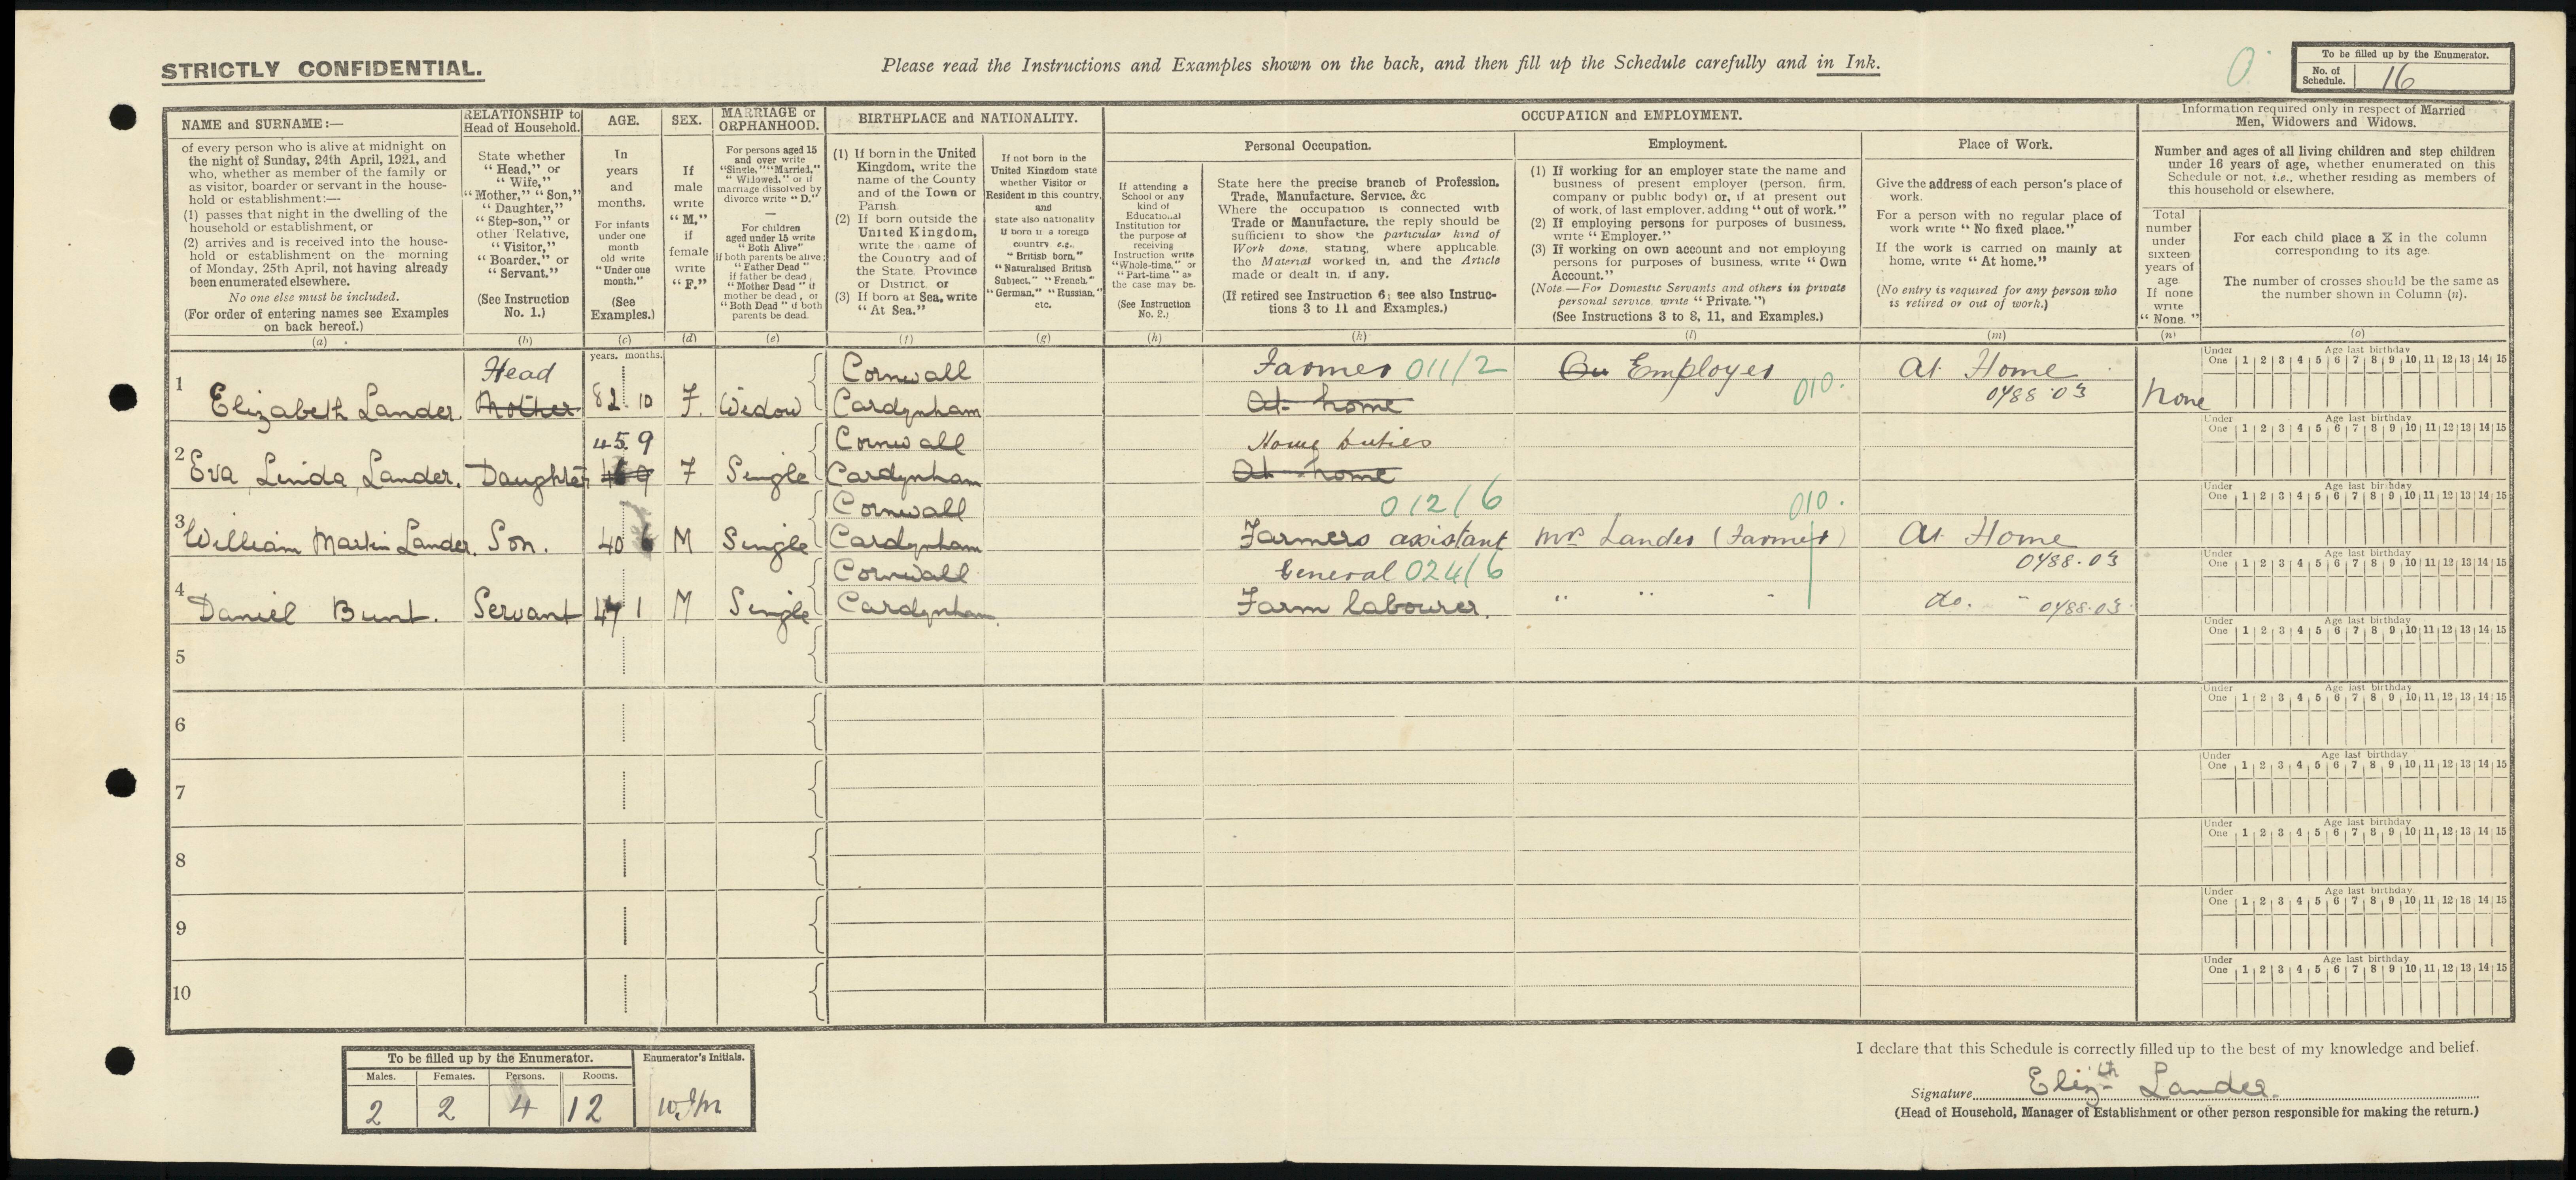 STRICTLY CONFIDENTIAL.
Please read the Instructions and Examples shown on the back, and then fill up the Schedule carefully and in Ink.
0
To be filled up by the Enumerator.
No. of Schedule. 16
NAME and SURNAME:—
of every person who is alive at midnight on
the night of Sunday, 24th April, 1921, and
who, whether as member of the family or
as visitor, boarder or servant in the house-
hold or establishment:—
(1) passes that night in the dwelling of the
household or establishment, or
(2) arrives and is received into the house-
hold or establishment on the morning
of Monday, 25th April, not having already
been enumerated elsewhere.
No one else must be included.
(For order of entering names see Examples
on back hereof.)
(a)
RELATIONSHIP to
Head of Household.
State whether
"Head," or
"Wife,"
"Mother," "Son,"
"Daughter,"
"Step-son," or
other Relative,
"Visitor,"
"Boarder," or
"Servant."
(See Instruction
No. 1.)
(b)
AGE.
In
years
and
months.
For infants
under one
month
old write
"Under one
month."
(See
Examples.)
(c)
SEX.
If
male
write
"M."
if
female
write
"F."
(d)
MARRIAGE or
ORPHANHOOD.
For persons aged 15
and over write
"Single," "Married,"
"Widowed," or if
marriage dissolved by
divorce write "D."
—
For children
aged under 15 write
"Both Alive"
if both parents be alive;
"Father Dead"
if father be dead;
"Mother Dead" if
mother be dead, or
"Both Dead" if both
parents be dead.
(e)
BIRTHPLACE and NATIONALITY.
(1) If born in the United
Kingdom, write the
name of the County
and of the Town or
Parish.
(2) If born outside the
United Kingdom,
write the name of
the Country and of
the State, Province
or District, or
(3) If born at Sea, write
"At Sea."
(f)
If not born in the
United Kingdom state
whether Visitor or
Resident in this country,
and
state also nationality
if born in a foreign
country e.g.,
"British born,"
"Naturalised British
Subject," "French,"
"German," "Russian,"
etc.
(g)
OCCUPATION and EMPLOYMENT.
If attending a
School or any
kind of
Educational
Institution for
the purpose of
receiving
Instruction write
"Whole-time," or
"Part-time," as
the case may be.
(See Instruction
No. 2.)
(h)
Personal Occupation.
State here the precise branch of Profession,
Trade, Manufacture, Service, &c
Where the occupation is connected with
Trade or Manufacture, the reply should be
sufficient to show the particular kind of
Work done, stating, where applicable
the Material worked in, and the Article
made or dealt in, if any.
(If retired see Instruction 6; see also Instruc-
tions 3 to 11 and Examples.)
(k)
Employment.
(1) If working for an employer state the name and
business of present employer (person, firm,
company or public body) or, if at present out
of work, of last employer, adding "out of work."
(2) If employing persons for purposes of business,
write "Employer."
(3) If working on own account and not employing
persons for purposes of business, write "Own
Account."
(Note—For Domestic Servants and others in private
personal service, write "Private.")
(See Instructions 3 to 8, 11, and Examples.)
(l)
Place of Work.
Give the address of each person's place of
work.
For a person with no regular place of
work write "No fixed place."
If the work is carried on mainly at
home, write "At home."
(No entry is required for any person who
is retired or out of work.)
(m)
Information required only in respect of Married
Men, Widowers and Widows.
Number and ages of all living children and step children
under 16 years of age, whether enumerated on this
Schedule or not, i.e., whether residing as members of
this household or elsewhere.
Total
number
under
sixteen
years of
age
If none
write
"None."
(n)
For each child place a X in the column
corresponding to its age.
The number of crosses should be the same as
the number shown in Column (n).
(o)
years. months.
Under One Age last birthday 1 2 3 4 5 6 7 8 9 10 11 12 13 14 15
Head Cornwall Farmer 011/2 Employer At Home
1 Elizabeth Lander. Mother 82 10 F. Widow Cardynham At home 010. 0488.03 None
Under One Age last birthday 1 2 3 4 5 6 7 8 9 10 11 12 13 14 15
45 9 Cornwall Home Duties
2 Eva Linda Lander. Daughter 46 9 F Single Cardynham At home
Under One Age last birthday 1 2 3 4 5 6 7 8 9 10 11 12 13 14 15
Cornwall 012/6 010.
3 William Martin Lander. Son. 40 6 M Single Cardynham Farmers assistant Mrs Lander (Farmer) At Home
Under One Age last birthday 1 2 3 4 5 6 7 8 9 10 11 12 13 14 15
Cornwall General 024/6 0488.03
4 Daniel Bunt. Servant 47 1 M Single Cardynham Farm labourer. " " do. 0488.03
Under One Age last birthday 1 2 3 4 5 6 7 8 9 10 11 12 13 14 15
5
Under One Age last birthday 1 2 3 4 5 6 7 8 9 10 11 12 13 14 15
6
Under One Age last birthday 1 2 3 4 5 6 7 8 9 10 11 12 13 14 15
7
Under One Age last birthday 1 2 3 4 5 6 7 8 9 10 11 12 13 14 15
8
Under One Age last birthday 1 2 3 4 5 6 7 8 9 10 11 12 13 14 15
9
Under One Age last birthday 1 2 3 4 5 6 7 8 9 10 11 12 13 14 15
10
To be filled up by the Enumerator.
Males. Females. Persons. Rooms.
2 2 4 12
Enumerator's Initials.
I declare that this Schedule is correctly filled up to the best of my knowledge and belief.
Signature Elizth Lander.
(Head of Household, Manager of Establishment or other person responsible for making the return.)